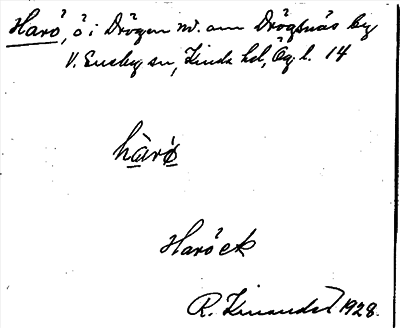 Harö, ö i Drögen nv. om Drögsnäs by
V. Eneby sn, Kinda hd, Ög. l. 14
hàrö
Haröck
R. Kinander 1928.